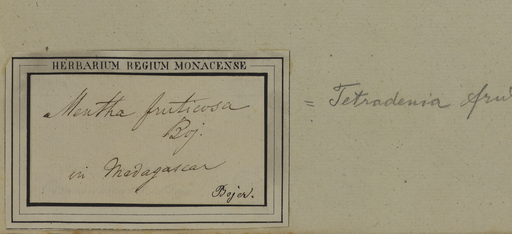 HERBARIUM REGIUM MONACENSE
Mentha fruticosa
Boj.
= Tetradenia fru
in Madagascar
Bojer.